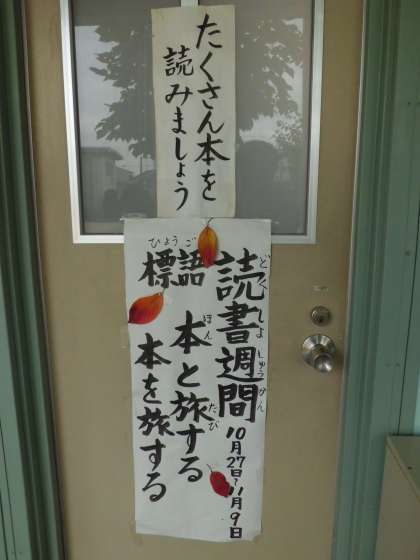 たくさん本を
読みましょう
読書週間
どくしょしゅうかん
10月27日~11月9日
標語
ひょうご
本と旅する
ほん たび
本を旅する